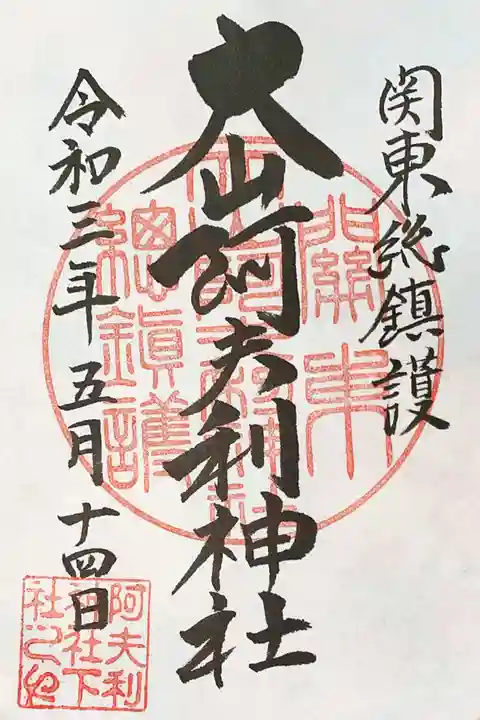 関東総鎮護
大山阿夫利神社
令和三年五月十四日
關東
總鎮護
阿夫利
神社下
社之印